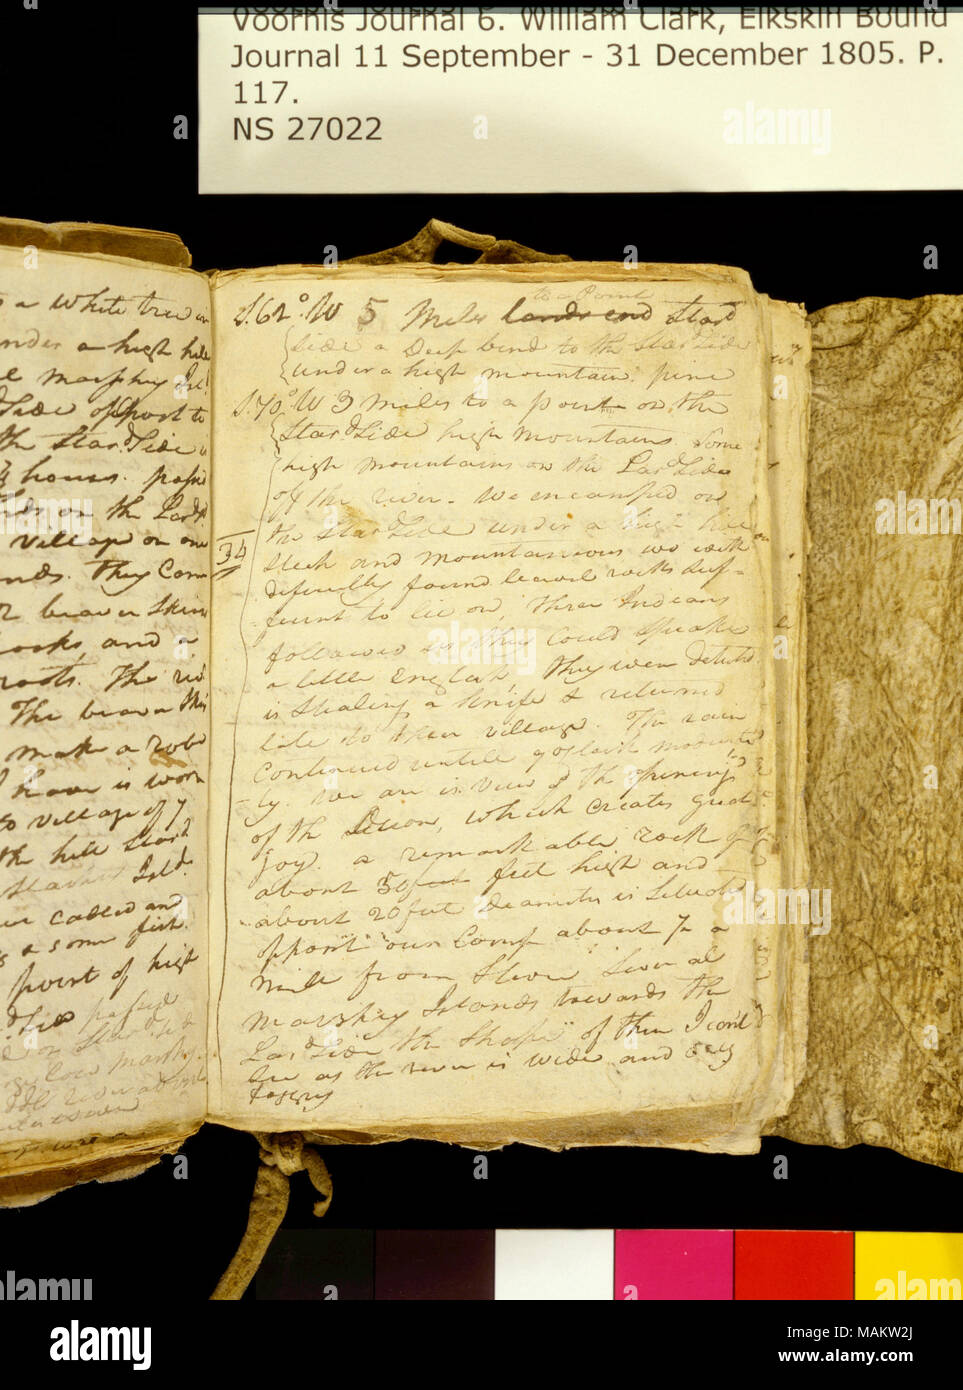 Voorhis Journal 6. William Clark, Elkskin Bound
Journal 11 September - 31 December 1805. P.
117.
NS 27022
a white tree
under a high hill
Marshey Isld
Side opposit to
the Star.d Side
houses. passd
on the Lard
village on
They Came
beaver Skins
and a
roots. The
The beaver
make a robe
I have is worn
village of 7
the hill Stard
Isld.
called and
& some fish.
point of high
Side passed
on Stard Side
Low marshy
to a Point
S. 62° W 5 Miles lands end Stard
Side a Deep bend to the Star.d Side
under a high mountain. pine
S. 70° W 3 miles to a point on the
Star.d Side high mountains Some
high mountains on the Lar.d Side
off the river - We encamped on
the Star.d Side under a high hill
34
Steep and mountainous we with
dificuelty found leavel rocks Suf-
ficent to lie on, Three Indians
followed us they Could Speake
a little English, they were detected
in Stealing a knife & returned
late to their village. The rain
Continued untill 9 oClock moderate
ly. We are in view of the opening
of the Ocian, which Creates great
joy. a remarkable rock of
about 50 feet feet high and
about 20 feet Deameter is Situated
opposit our Camp about ½ a
mile from Shore Several
Marshey Islands towards the
Lar.d Side the Shape of them I can't
See as the river is wide and day
foggey
a
alamy
alamy
Image ID: MAKW2J
www.alamy.com